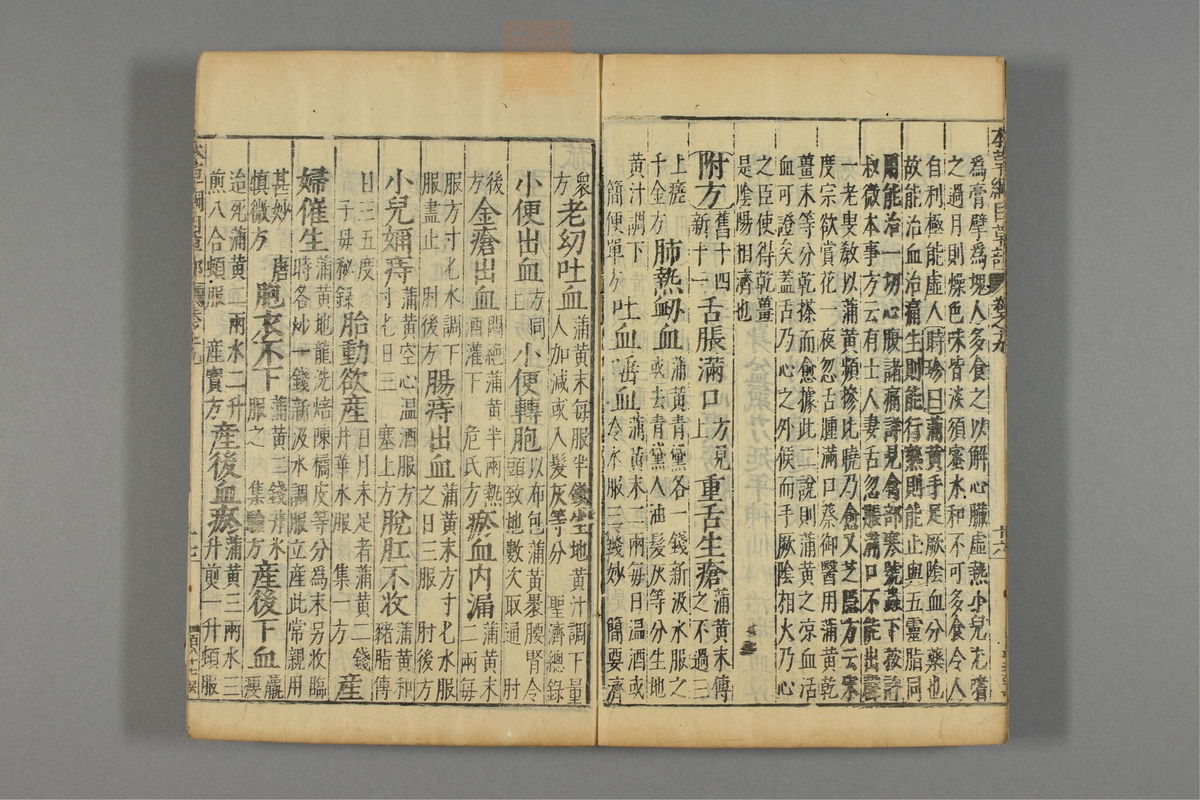 本草綱目草部 卷之十九 十六
爲膏擘爲塊人多食之以解心臟虛熱小兒尤嗜
之過月則燥色味皆淡須蜜水和不可多食令人
自利極能虛人時珍曰蒲黃手足厥陰血分藥也
故能治血治痛生則能行熟則能止與五靈脂同
用能治一切心腹諸痛詳見禽部寒號蟲下按許
叔微本事方云有士人妻舌忽脹滿口不能出聲
一老叟敎以蒲黃頻摻比曉乃愈又芝隱方云宋
度宗欲賞花一夜忽舌腫滿口蔡御醫用蒲黃乾
薑末等分乾搽而愈據此二說則蒲黃之凉血活
血可證矣蓋舌乃心之外候而手厥陰相火乃心
之臣使得乾薑
是陰陽相濟也
附方舊十四新十一舌脹滿口方見上重舌生瘡蒲黃末傅之不過三
上瘥千金方肺熱衂血蒲黃青黛各一錢新汲水服之或去青黛入油髮灰等分生地
黃汁調下簡便單方吐血唾血蒲黃末二兩每日温酒或冷水服三錢妙簡要濟
衆方老幼吐血蒲黃末每服半錢生地黃汁調下量人加減或入髮灰等分聖濟總錄
小便出血方同上小便轉胞以布包蒲黃裹腰腎令頭致地數次取通肘
後方金瘡出血悶絶蒲黃半兩熱酒灌下危氏方瘀血內漏蒲黃末二兩每
服方寸匕水調下服盡止肘後方腸痔出血蒲黃末方寸匕水服之日三服肘後方
小兒嬭痔蒲黃空心温酒服方寸匕日三塞上方脫肛不收蒲黃和豬脂傅
日三五度子母秘錄胎動欲產日月未足者蒲黃二錢井華水服集一方產
婦催生蒲黃地龍洗焙陳橘皮等分爲末另收臨時各炒一錢新汲水調服立產此常親用
甚妙唐愼微方胞衣不下蒲黃二錢井水服之集驗方產後下血羸瘦
迨死蒲黃二兩水二升煎八合頓服產寶方產後血瘀蒲黃三兩水三升煎一升頓服
本草綱目草部 卷之十九